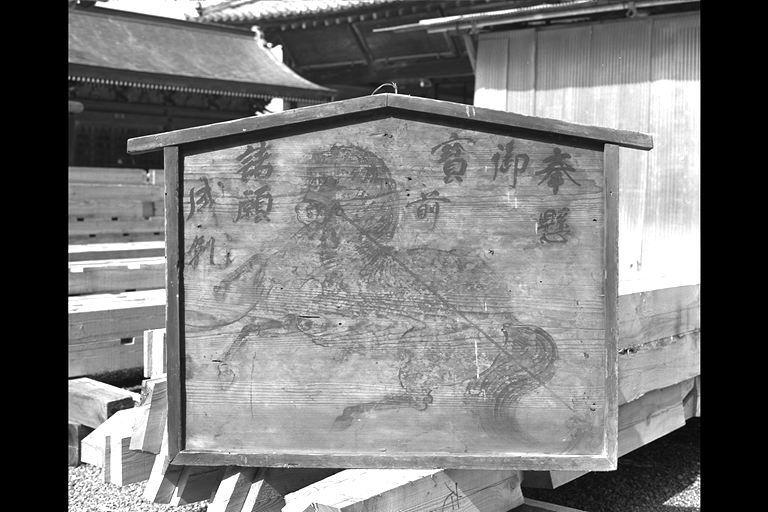 奉懸
御
寳前
諸願
成就